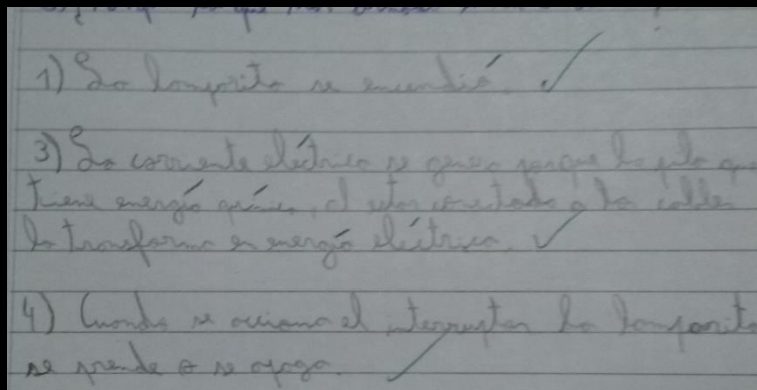 1) La lamparita se encendió.
3) La corriente eléctrica se genera porque la pila que
tiene energía química, al estar conectada a los cables
la transforma en energía eléctrica.
4) Cuando se acciona el interruptor la lamparita
se prende o se apaga.